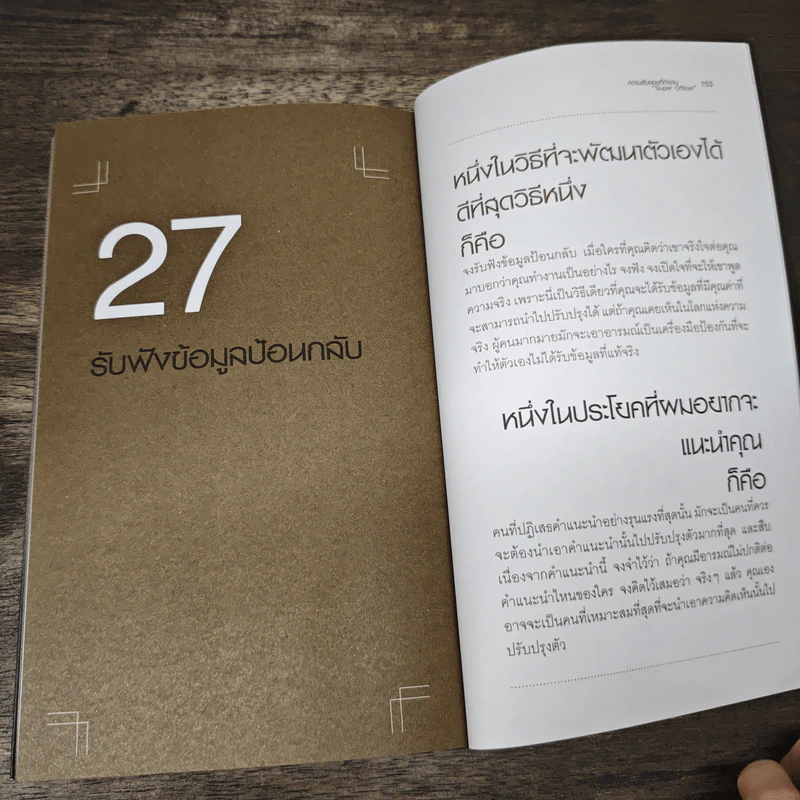 27
รับฟังข้อมูลป้อนกลับ
"Super Office" 153
หนึ่งในวิธีที่จะพัฒนาตัวเองได้
ดีที่สุดวิธีหนึ่ง
ก็คือ
จงรับฟังข้อมูลป้อนกลับ เมื่อใครที่คุณคิดว่าเขาจริงใจต่อคุณ
มาบอกว่าคุณทำงานเป็นอย่างไร จงฟัง จงเปิดใจที่จะให้เขาพูด
ความจริง เพราะนี่เป็นวิธีเดียวที่คุณจะได้รับข้อมูลที่มีคุณค่าที่
จะสามารถนำไปปรับปรุงได้ แต่ถ้าคุณเคยเห็นในโลกแห่งความ
จริง ผู้คนมากมายมักจะเอาอารมณ์เป็นเครื่องมือป้องกันที่จะ
ทำให้ตัวเองไม่ได้รับข้อมูลที่แท้จริง
หนึ่งในประโยคที่ผมอยากจะ
แนะนำคุณ
ก็คือ
คนที่ปฏิเสธคำแนะนำอย่างรุนแรงที่สุดนั้น มักจะเป็นคนที่ควร
จะต้องนำเอาคำแนะนำนั้นไปปรับปรุงตัวมากที่สุด และสืบ
เนื่องจากคำแนะนำนี้ จงจำไว้ว่า ถ้าคุณมีอารมณ์ไม่ปกติต่อ
คำแนะนำไหนของใคร จงคิดไว้เสมอว่า จริงๆ แล้ว คุณเอง
อาจจะเป็นคนที่เหมาะสมที่สุดที่จะนำเอาความคิดเห็นนั้นไป
ปรับปรุงตัว